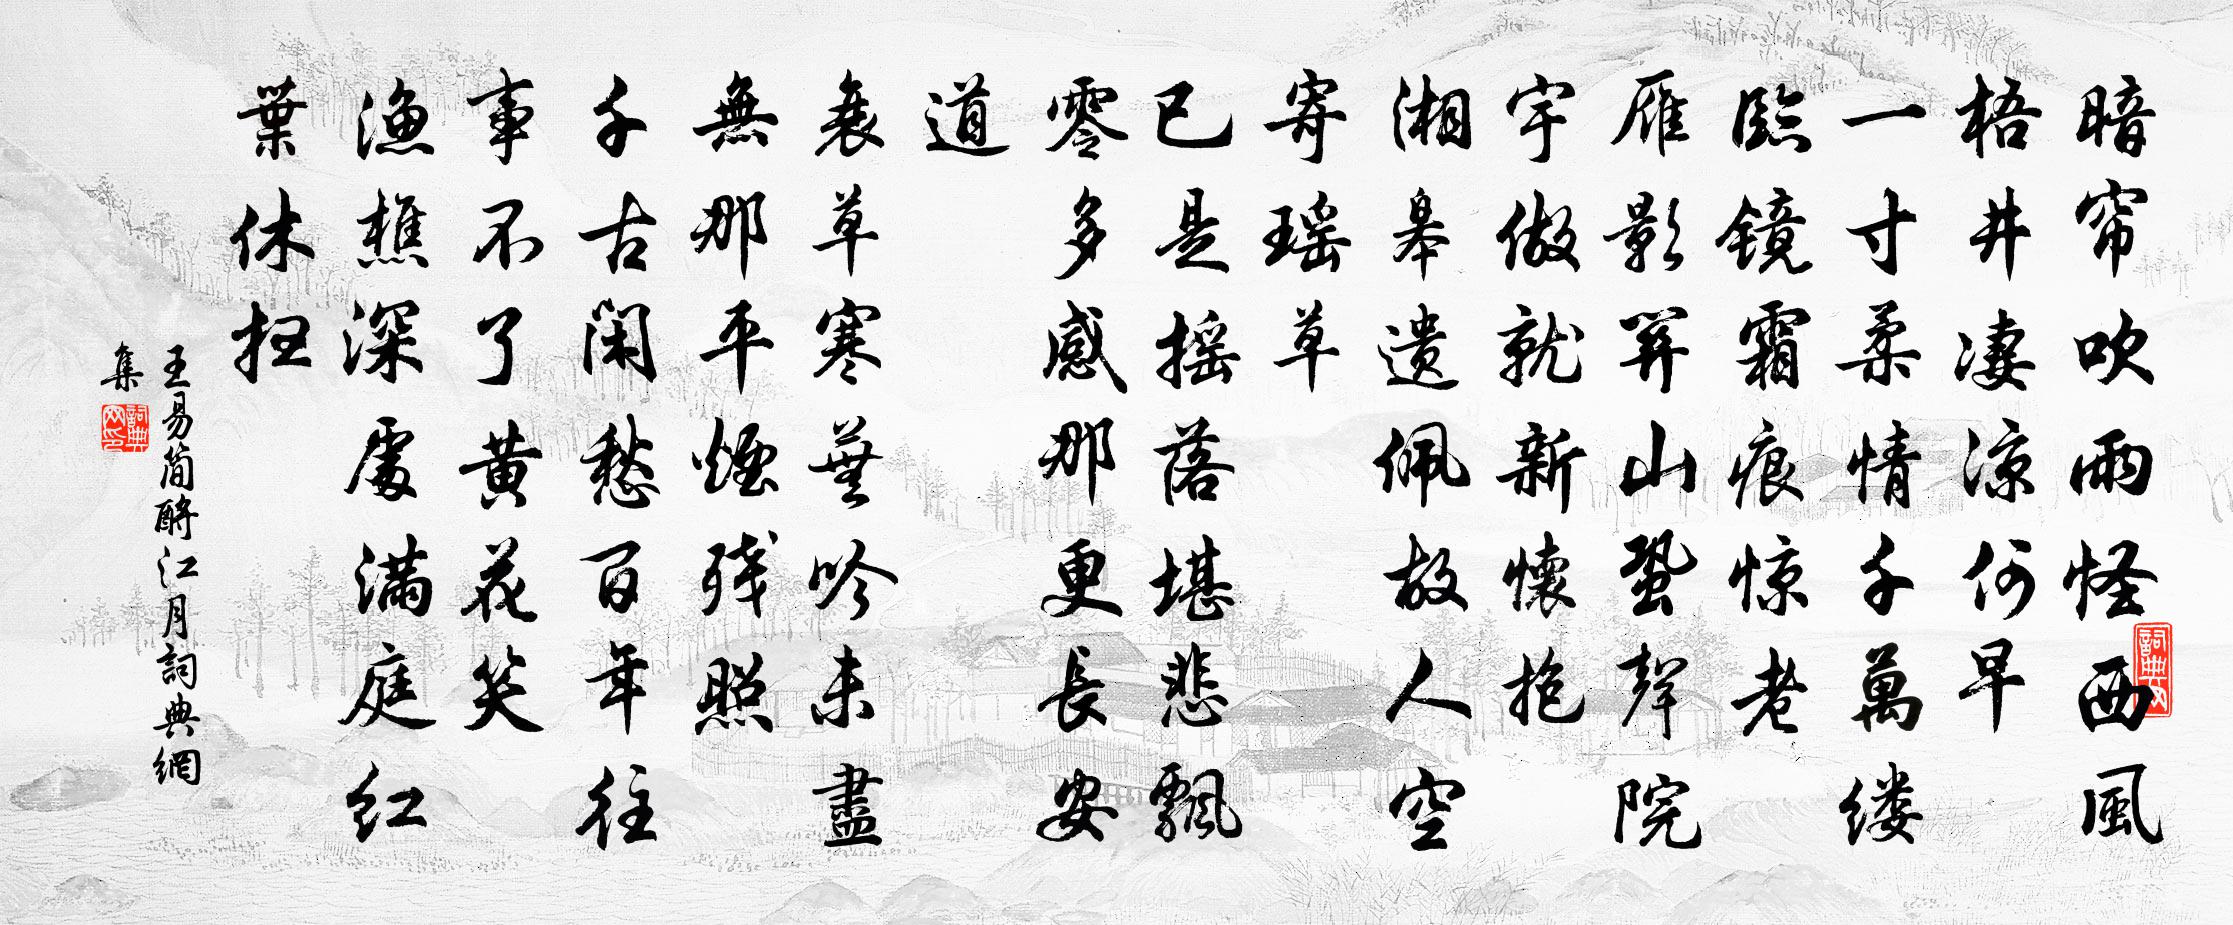 暗帘吹雨怪西風
梧井凄涼何早
一寸柔情千萬缕
臨镜霜痕惊老
雁影関山蛩聲院
宇做就新懷抱
湘皋遗佩故人空
寄瑶草
已是摇落堪悲飄
零多感那更長安
道
衰草寒蕪吟未盡
無那平煙残照
千古閑愁百年往
事不了黄花笑
渔樵深處满庭红
葉休扫
王易简酹江月詞典網
集
詞典网
詞典网印